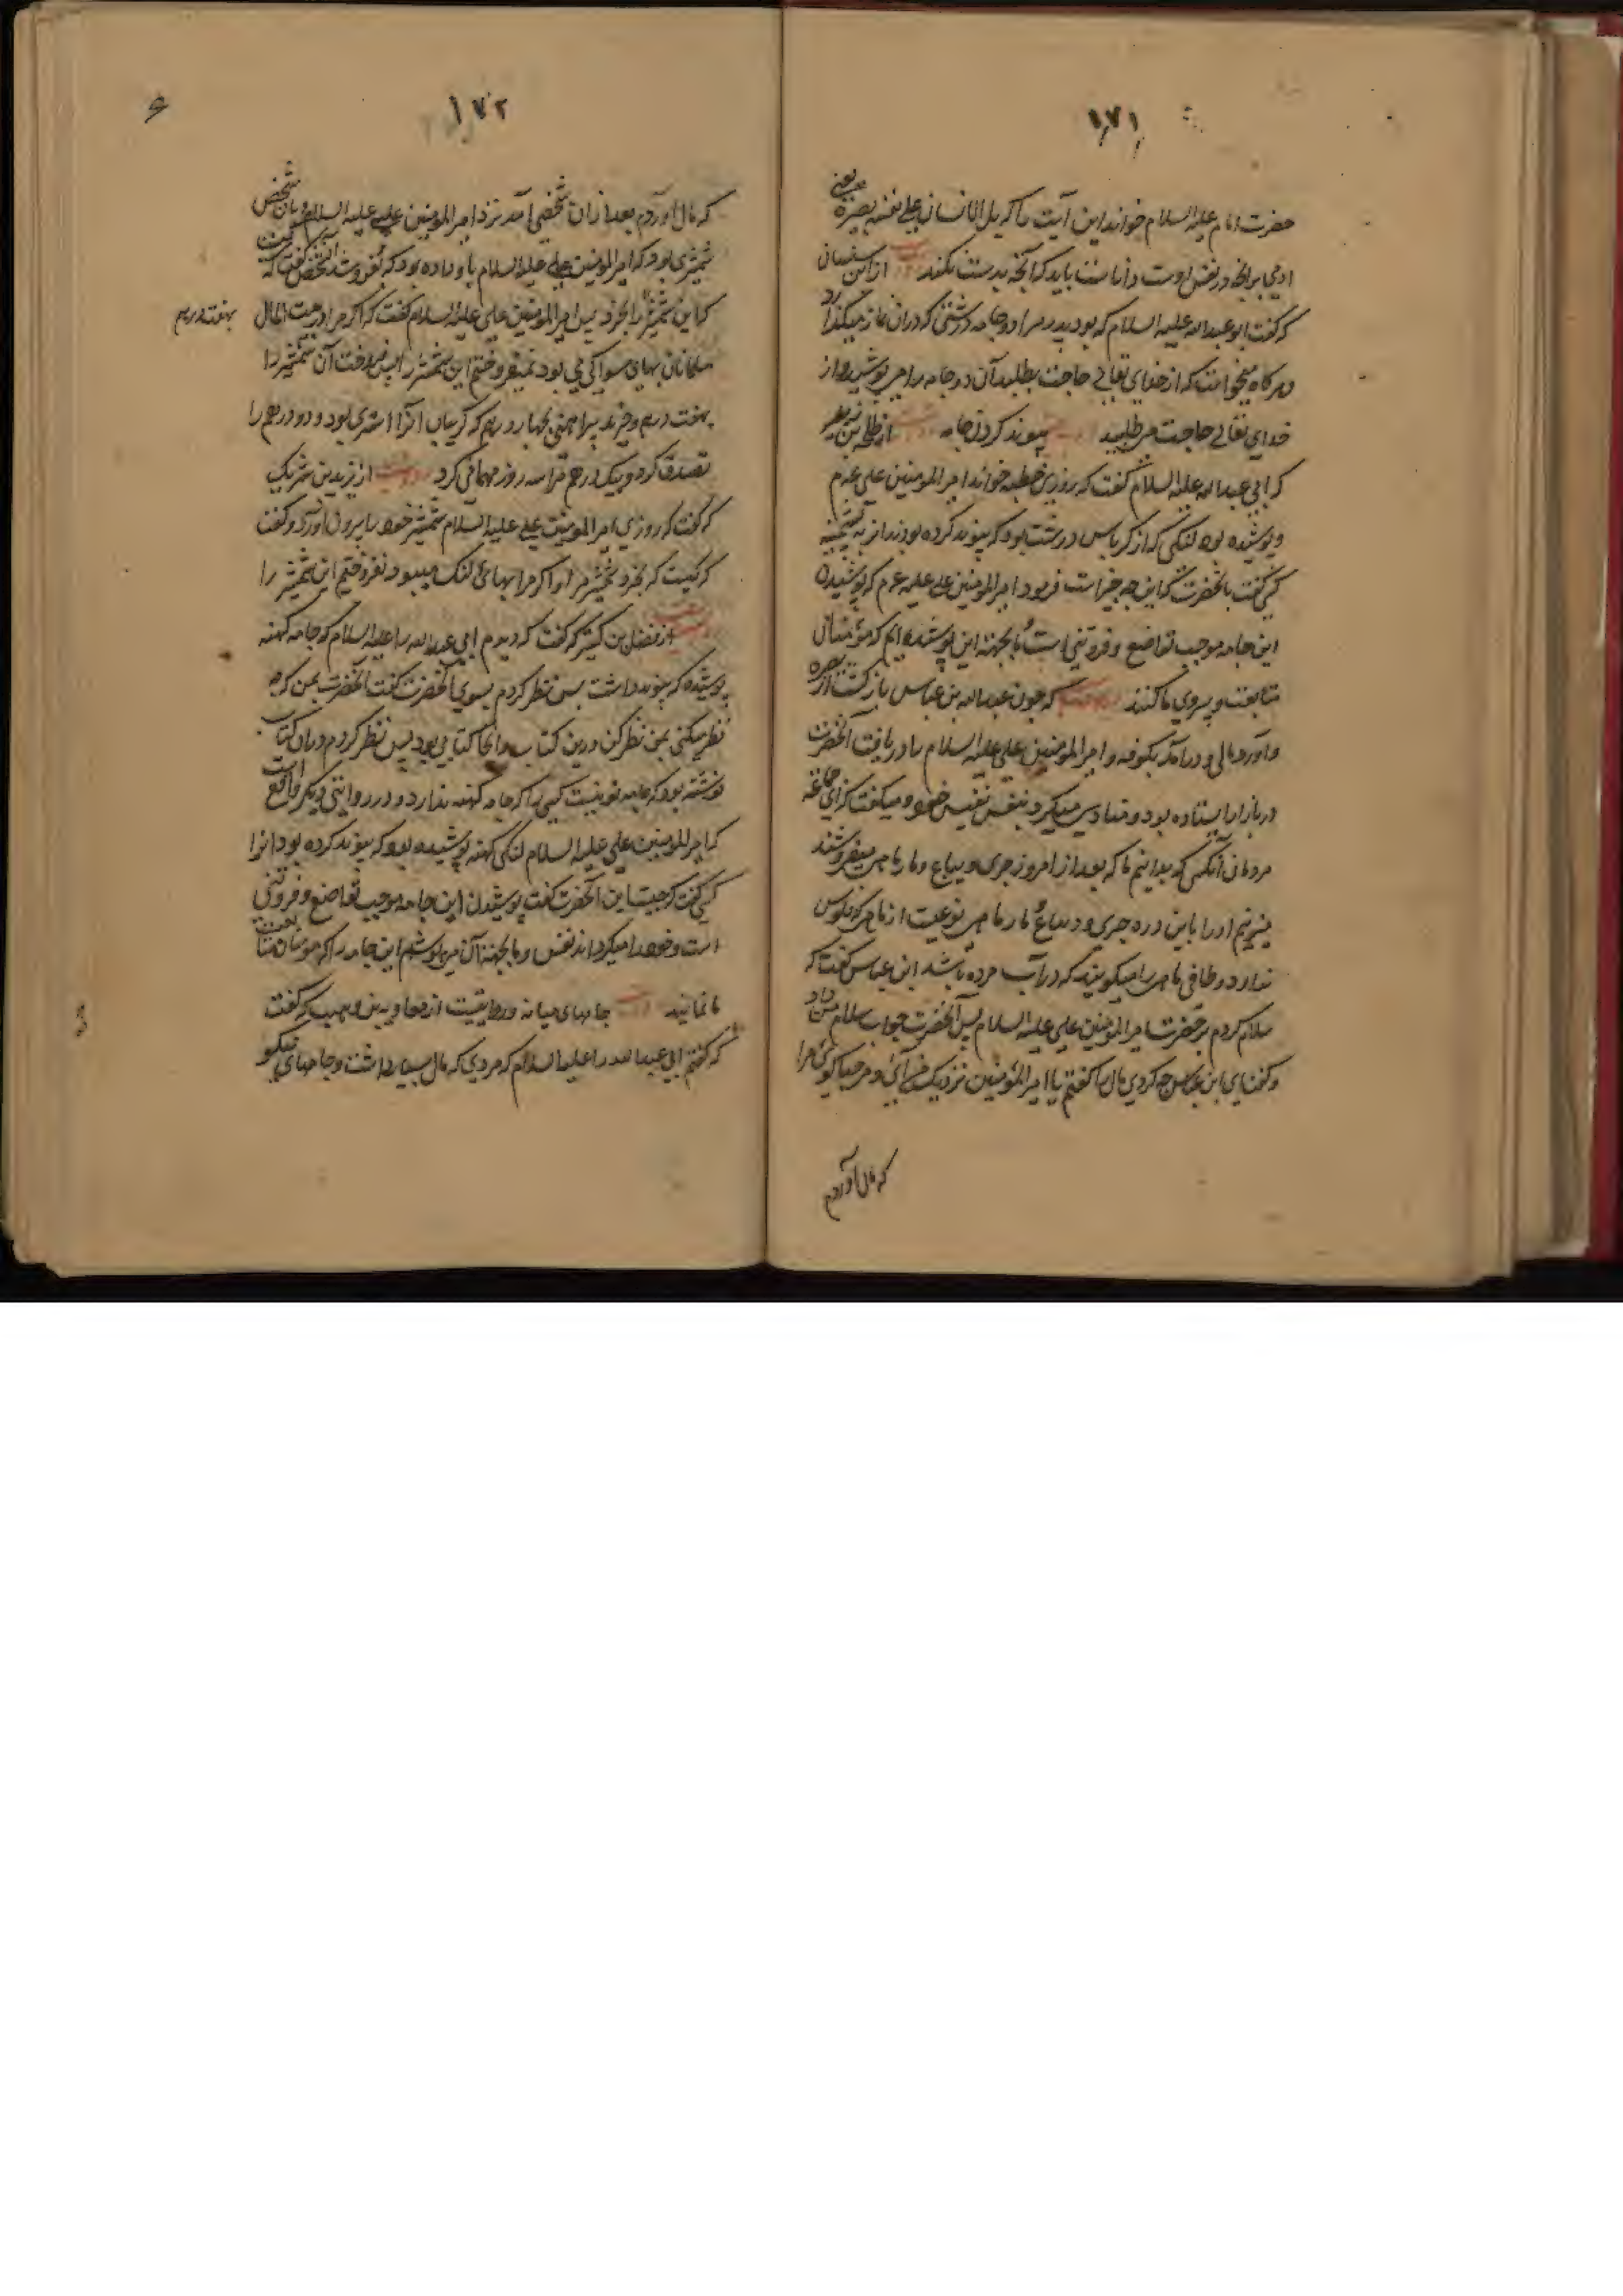 ۱۷۱
حضرت امام علیه السلام خواند این آیت را که بل الانسان علی نفسه بصیرة یعنی
ادمی برانچه در نفس اوست داناست باید که انچه بدست نکند از ابن سنان
که گفت ابو عبدالله علیه السلام که بود پدر مرا دو جامه درشتی که دران نماز میگذارد
و هرگاه میخواست که از خدای تعالی حاجت بطلبد آن دو جامه را می پوشید و از
خدای تعالی حاجت می طلبید پیوند کردن جامه از
که ابی عبدالله علیه السلام گفت که روزی خطبه خواند امیر المومنین علی
و پوشیده بود لنگی که از کرباس درشت بود که پیوند کرده بودند
کسی گفت بانحضرت که این چه چیز است فرمود امیر المومنین علی علیه که پوشیدن
این جامه موجب تواضع و فروتنی است و ما بجهته این پوشیده ایم که مؤمنان
متابعت و پیروی ما کنند که چون عبدالله بن عباس بازگشت از بصره
و آورد مالی و درآمد بکوفه و امیر المومنین علی علیه السلام را دریافت آنحضرت
در بازار ایستاده بود و منادی میکرد بنفس نفیس خود و میگفت که ای جماعة
مردمان آنکسی که بدانیم ما که بعد از امروز جری و مارماهی میفروشند
میزنیم او را باین دره جری و مارماهی نوعیست از ماهی که فلوس
ندارد و طافی ماهی را میگویند که در آب مرده باشد ابن عباس گفت که
سلام کردم بر حضرت امیر المومنین علی علیه السلام پس آنحضرت جواب سلام من داد
و گفت ای ابن عباس چه کردی مال را گفتم یا امیر المؤمنین نزدیک
که مال آوردم
۱۷۲
که مال آوردم بعد ازان شخصی آمد نزد امیر المومنین علی علیه السلام و بان شخص
شمشیری بود که امیر المومنین علی علیه السلام باو داده بود که بفروشد
که این شمشیر را بخرد پس امیر المومنین علی علیه السلام گفت که اگر مرا در بیت المال
مسلمانان بهای مسواکی می بود نمیفروختم این شمشیر را پس فروخت آن شمشیر را
بهفت درهم
بهفت درهم و خرید پیراهنی بچهار درهم که و دو درهم را
تصدق کرد و بیک درهم مرا سه روز مهمانی کرد از زید بن شریک
که گفت که روزی امیر المومنین علی علیه السلام شمشیر خود را بیرون آورد و گفت
که کیست که بخرد شمشیر مرا و اگر مرا بهای لنگ میبود نمیفروختم این شمشیر را
از فضل بن کثیر که گفت که دیدم ابی عبدالله را علیه السلام که جامه کهنه
پوشیده که پیوند داشت پس نظر کردم بسوی آنحضرت گفت آنحضرت بمن که چه
نظر میکنی بمن نظر کن درین کتاب و انجا کتابی بود پس نظر کردم دران کتاب
نوشته بود که جامه نو نیست کسی را که جامه کهنه ندارد و در روایتی دیگر واقع است
که امیر المومنین علی علیه السلام لنگی کهنه پوشیده بود که پیوند کرده بود انرا
کسی گفت که چیست این آنحضرت گفت پوشیدن این جامه موجب تواضع و فروتنی
است و نفس و ما بجهته آن می پوشیم این جامه را که مومنان متابعت
ما نمایند جامهای میانه و روایتست از معاویه بن وهب که گفت
که گفتم ابی عبدالله را علیه السلام که مردی که مال بسیار داشت و جامهای نیکو